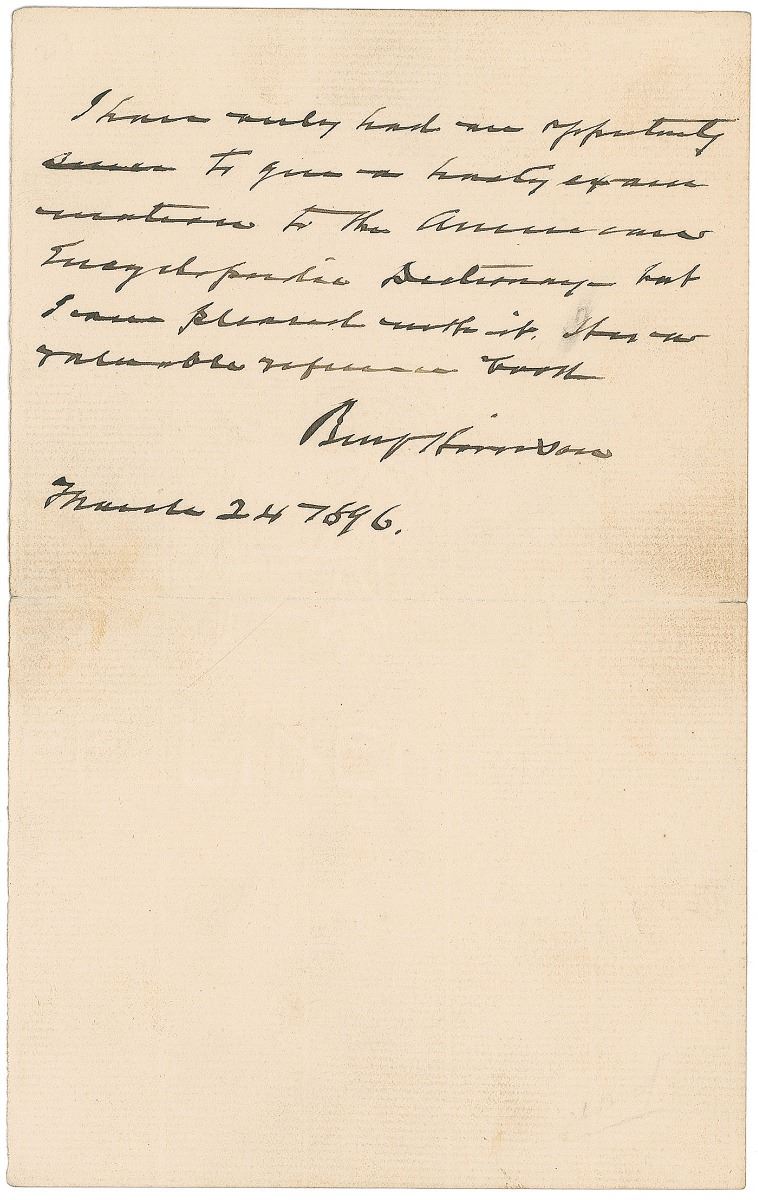 I have only had an opportunity
to give a hasty exam
ination to the American
Encyclopedic Dictionary - but
I am pleased with it. It is a
valuable reference book
Benj Harrison
March 24 1896.